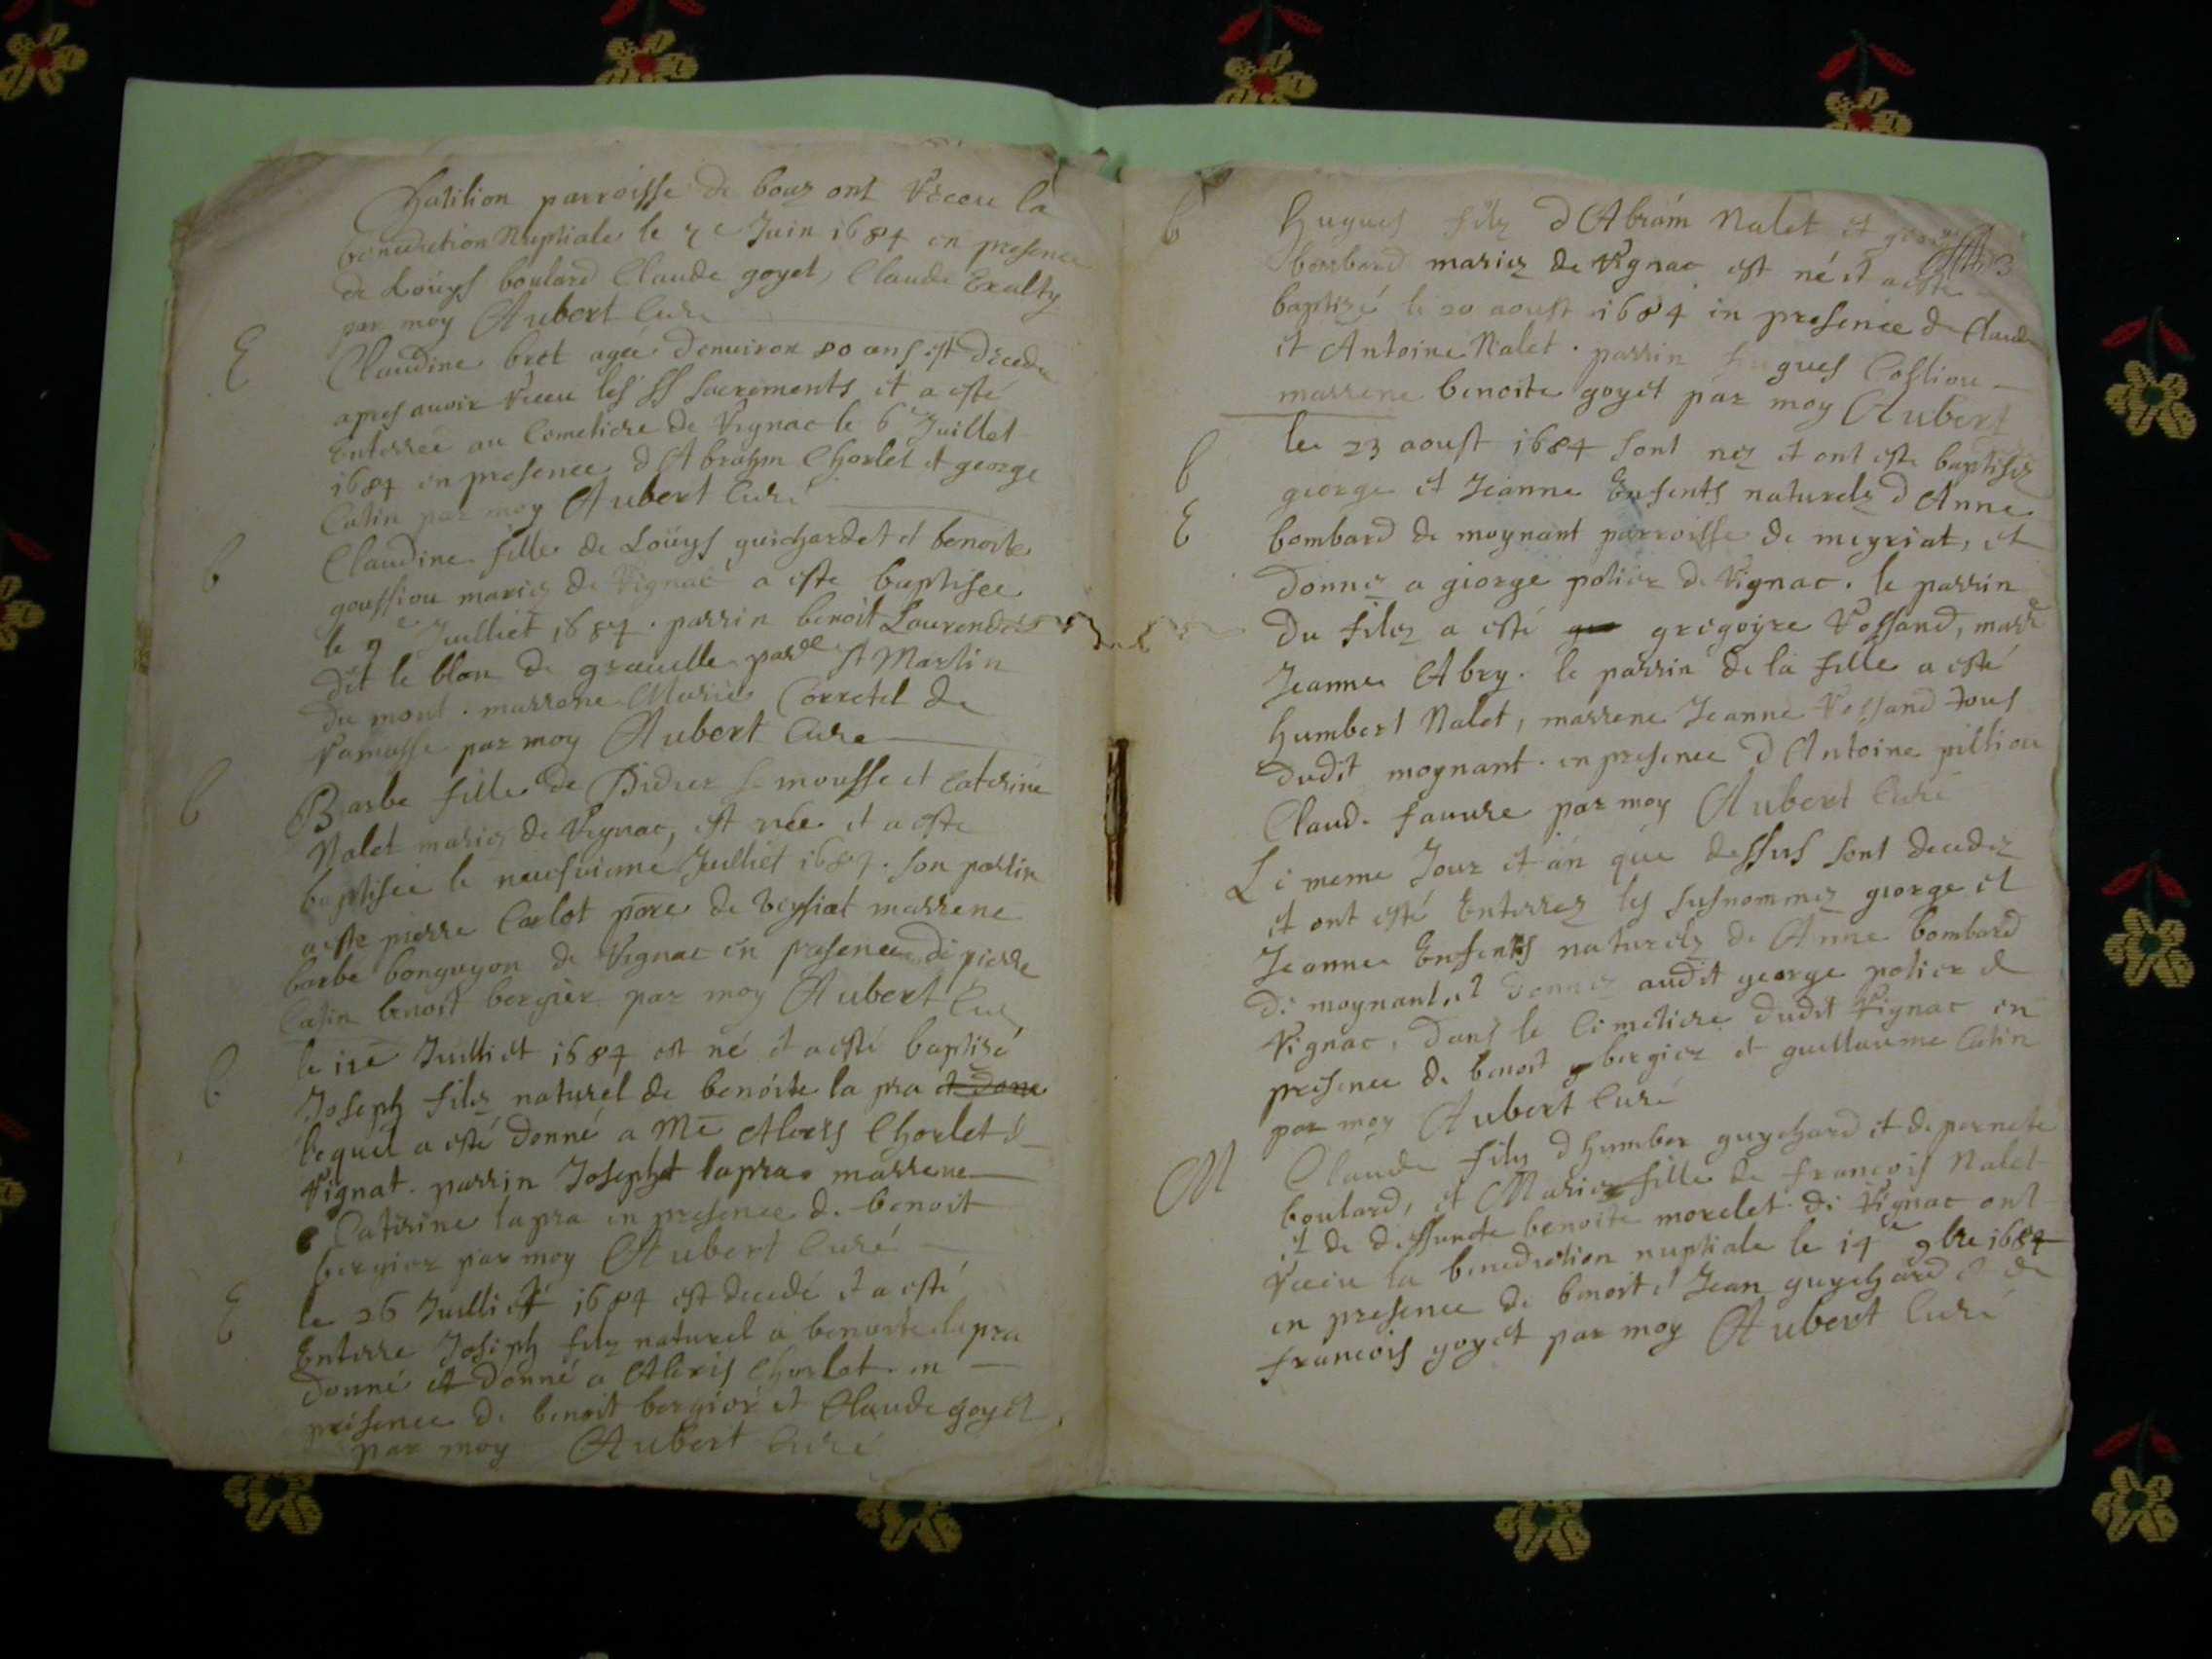 Chatilion parroisse de bouz ont Receu la
benediction Nuptiale le Juin 1684 en presence
de Loüys boulard Claude goyet, Claude
par moy Aubert Curé
E
Claudine bret agee denuiron 80 ans est decedee
apres auoir Receu les SS sacrements et a esté
Enterreé au Cometiere de Vignac le 6e Juillet
1684 en presence d'Abrahm Chorlet et george
Catin par moy Aubert Curé
b
Claudine fille de Loüys guichardet et benoite
goussiou mariez de Vignac a esté baptiseé
le 9e Juilliet 1684. parrin benoit
dit le blan de par St Martin
du mont. marrene Marie Corretel de
Ramasse par moy Aubert Curé
b
Barbe fille de Didier mousse et Caterine
Nalet mariez de Vignac, est neé et a esté
baptiseé le neufuieme Juilliet 1684. son parrin
a esté pierre Carlot de veysiat marrene
barbe bonguyon de Vignac en presence de pierre
Catin benoit bergier par moy Aubert Curé
b
le Juilliet 1684 est né et a esté baptisé
Joseph filz naturel de benoite la pra et done
lequel a esté donné a Me Alexis Chorlet d
Vignat. parrin Joseph lapra marrene
Catirine lapra en presence de benoit
bergier par moy Aubert Curé
E
le 26 Juilliet 1684 est decedé et a esté
Enterre Joseph filz naturel a benoite lapra
donné et donné a Alexis Chorlet en
presence de benoit bergier et Claude goyet,
par moy Aubert Curé
b
hugues filz d'Abram Nalet et
bombard mariez de Vignac est né et a esté
baptizé le 20 aoust 1684 in presence de Claude
et Antoine Nalet. parrin hugues
marrene benoite goyet par moy Aubert
b
le 23 aoust 1684 sont nez et ont esté baptisez
george et Jeanne Enfents naturelz d'Anne
E
bombard de moynant parroisse de meyriat, et
donnez a george potier de Vignac. le parrin
du filz a esté gregoyre Rossand, marre
Jeanne Abry. le parrin de la fille a esté
humbert Nalet, marrene Jeanne Rossand tous
dudit moynant. en presence d'Antoine pilliou
Claude fauure par moy Aubert Curé
Le meme Jour et an que dessus sont decedez
et ont esté Enterrez les susnommez george et
Jeanne Enfents naturelz de Anne bombard
de moynant, et donnez audit george potier de
Vignac, dans le Cimetiere dudit Vignac en
presence de benoit bergier et guillaume Catin
par moy Aubert Curé
M
Claude filz d'humber guychard et de pernete
boulard, et Marie fille de francois Nalet
et de deffuncte benoite morelet de Vignac ont
Receu la benediction nuptiale le 14e 9bre 1684
en presence de benoit et Jean guychard et de
francois goyet par moy Aubert Curé